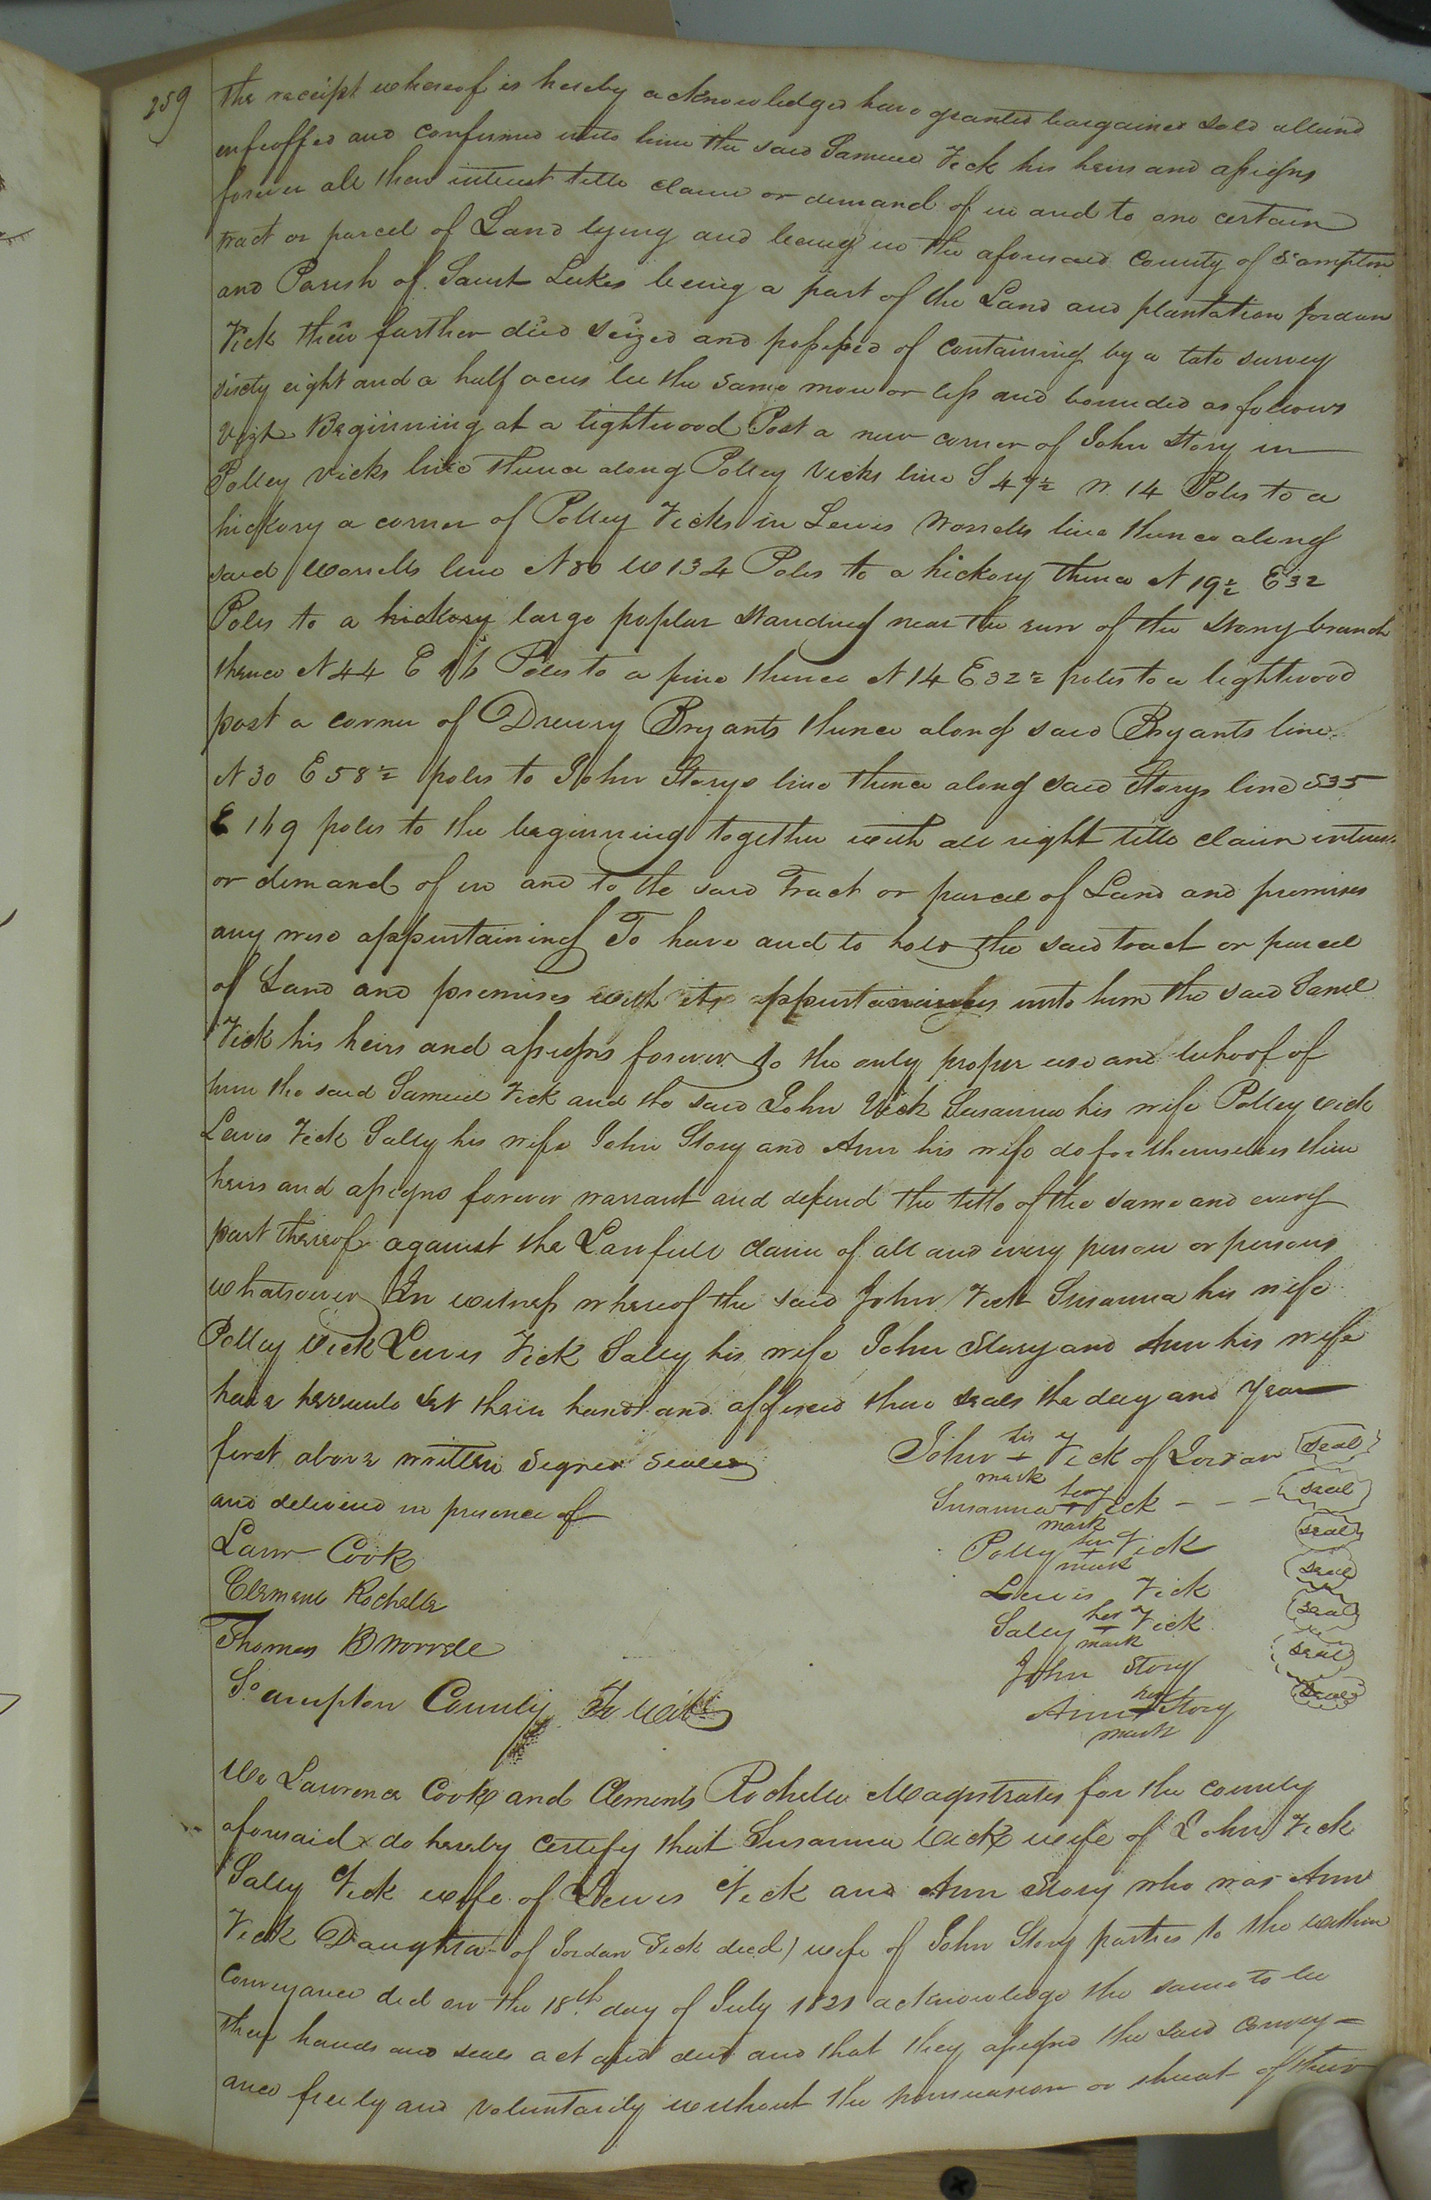 259
the receipt whereof is hereby acknowledged have granted bargained sold aliend
enfeoffed and confirmed unto him the said Samuel Vick his heirs and assigns
forever all their interest title claim or demand of in and to one certain
tract or parcel of Land lying and being in the aforesaid County of S'ampton
and Parish of Saint Lukes being a part of the Land and plantation Jordan
Vick their farther died seized and possessed of containing by a late survey
sixty eight and a half acres be the same more or less and bounded as follows
Vizt. Beginning at a lightwood Post a new corner of John Story in
Polley Vicks line thence along Polley Vicks line S 47½ W. 14 Poles to a
hickory a corner of Polley Vicks in Lewis Worrells line thence along
said Worrells line N 80 W 134 Poles to a hickory thence N 19½ E 32
Poles to a hickory large poplar standing near the run of the Stony branch
thence N 44 E 16 Poles to a pine thence N 14 E 32½ poles to a lightwood
post a corner of Drewry Bryants thence along said Bryants line
N 30 E 58½ poles to John Storys line thence along said Storys line S35
E 169 poles to the beginning together with all right title claim interest
or demand of in and to the said Tract or parcel of Land and premises
any wise appertaining To have and to hold the said tract or parcel
of Land and premises with its appurtainances unto him the said Saml
Vick his heirs and assigns forever to the only proper use and behoof of
him the said Samuel Vick and the said John Vick Susanna his wife Polley Vick
Lewis Vick Salley his wife John Story and Ann his wife do for themselves their
heirs and assigns forever warrant and defend the title of the same and every
part thereof against the Lawfull claim of all and every person or persons
whatsoever In witness whereof the said John Vick Susanna his wife
Polley Vick Lewis Vick Salley his wife John Story and Ann his wife
have hereunto set their hands and affixed their seals the day and year
first above written Signed Sealed
and delivered in presence of
Lawr Cook
Clement Rochelle
Thomas B Worrell
John his + mark Vick of Jordan seal
Susanna her + mark Vick - - - seal
Polley her + mark Vick seal
Lewis Vick seal
Salley her + mark Vick seal
John Story seal
Ann her + mark Story seal
So ampton County To Wit
We Lawrence Cook and Clements Rochelle Magistrates for the county
aforesaid do hereby certify that Susanna Vick wife of John Vick
Salley Vick wife of Lewis Vick and Ann Story who was Ann
Vick Daughter of Jordan Vick decd) wife of John Story parties to the within
conveyance did on the 18th day of July 1821 acknowledge the same to be
their hands and seals act and deed and that they assigned the said convey=
ance freely and voluntarily without the persuasion or threat of their